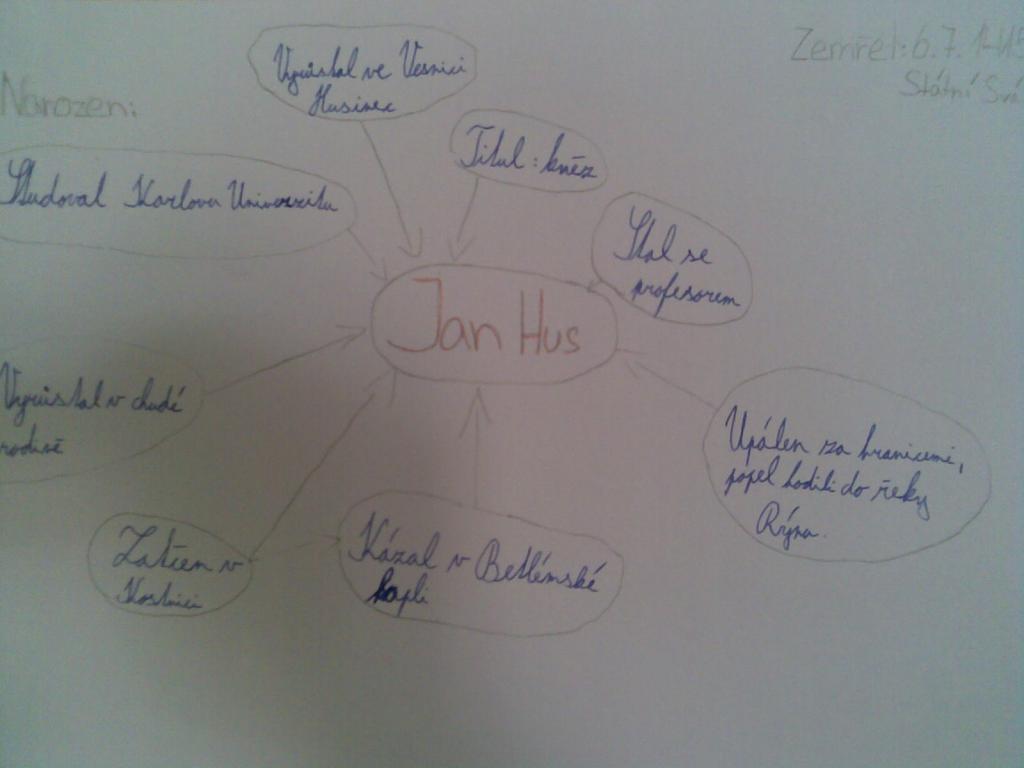 Narozen:
Zemřel: 6.7. 1415
Státní Svá
Vyrůstal ve Vesnici
Husinec
Titul: kněz
Studoval Karlovu Univerzitu
Stal se
profesorem
Jan Hus
Vyrůstal v chudé
rodině
Upálen za hranicemi,
popel hodili do řeky
Rýna.
Zatčen v
Kostnici
Kázal v Betlémské
kapli